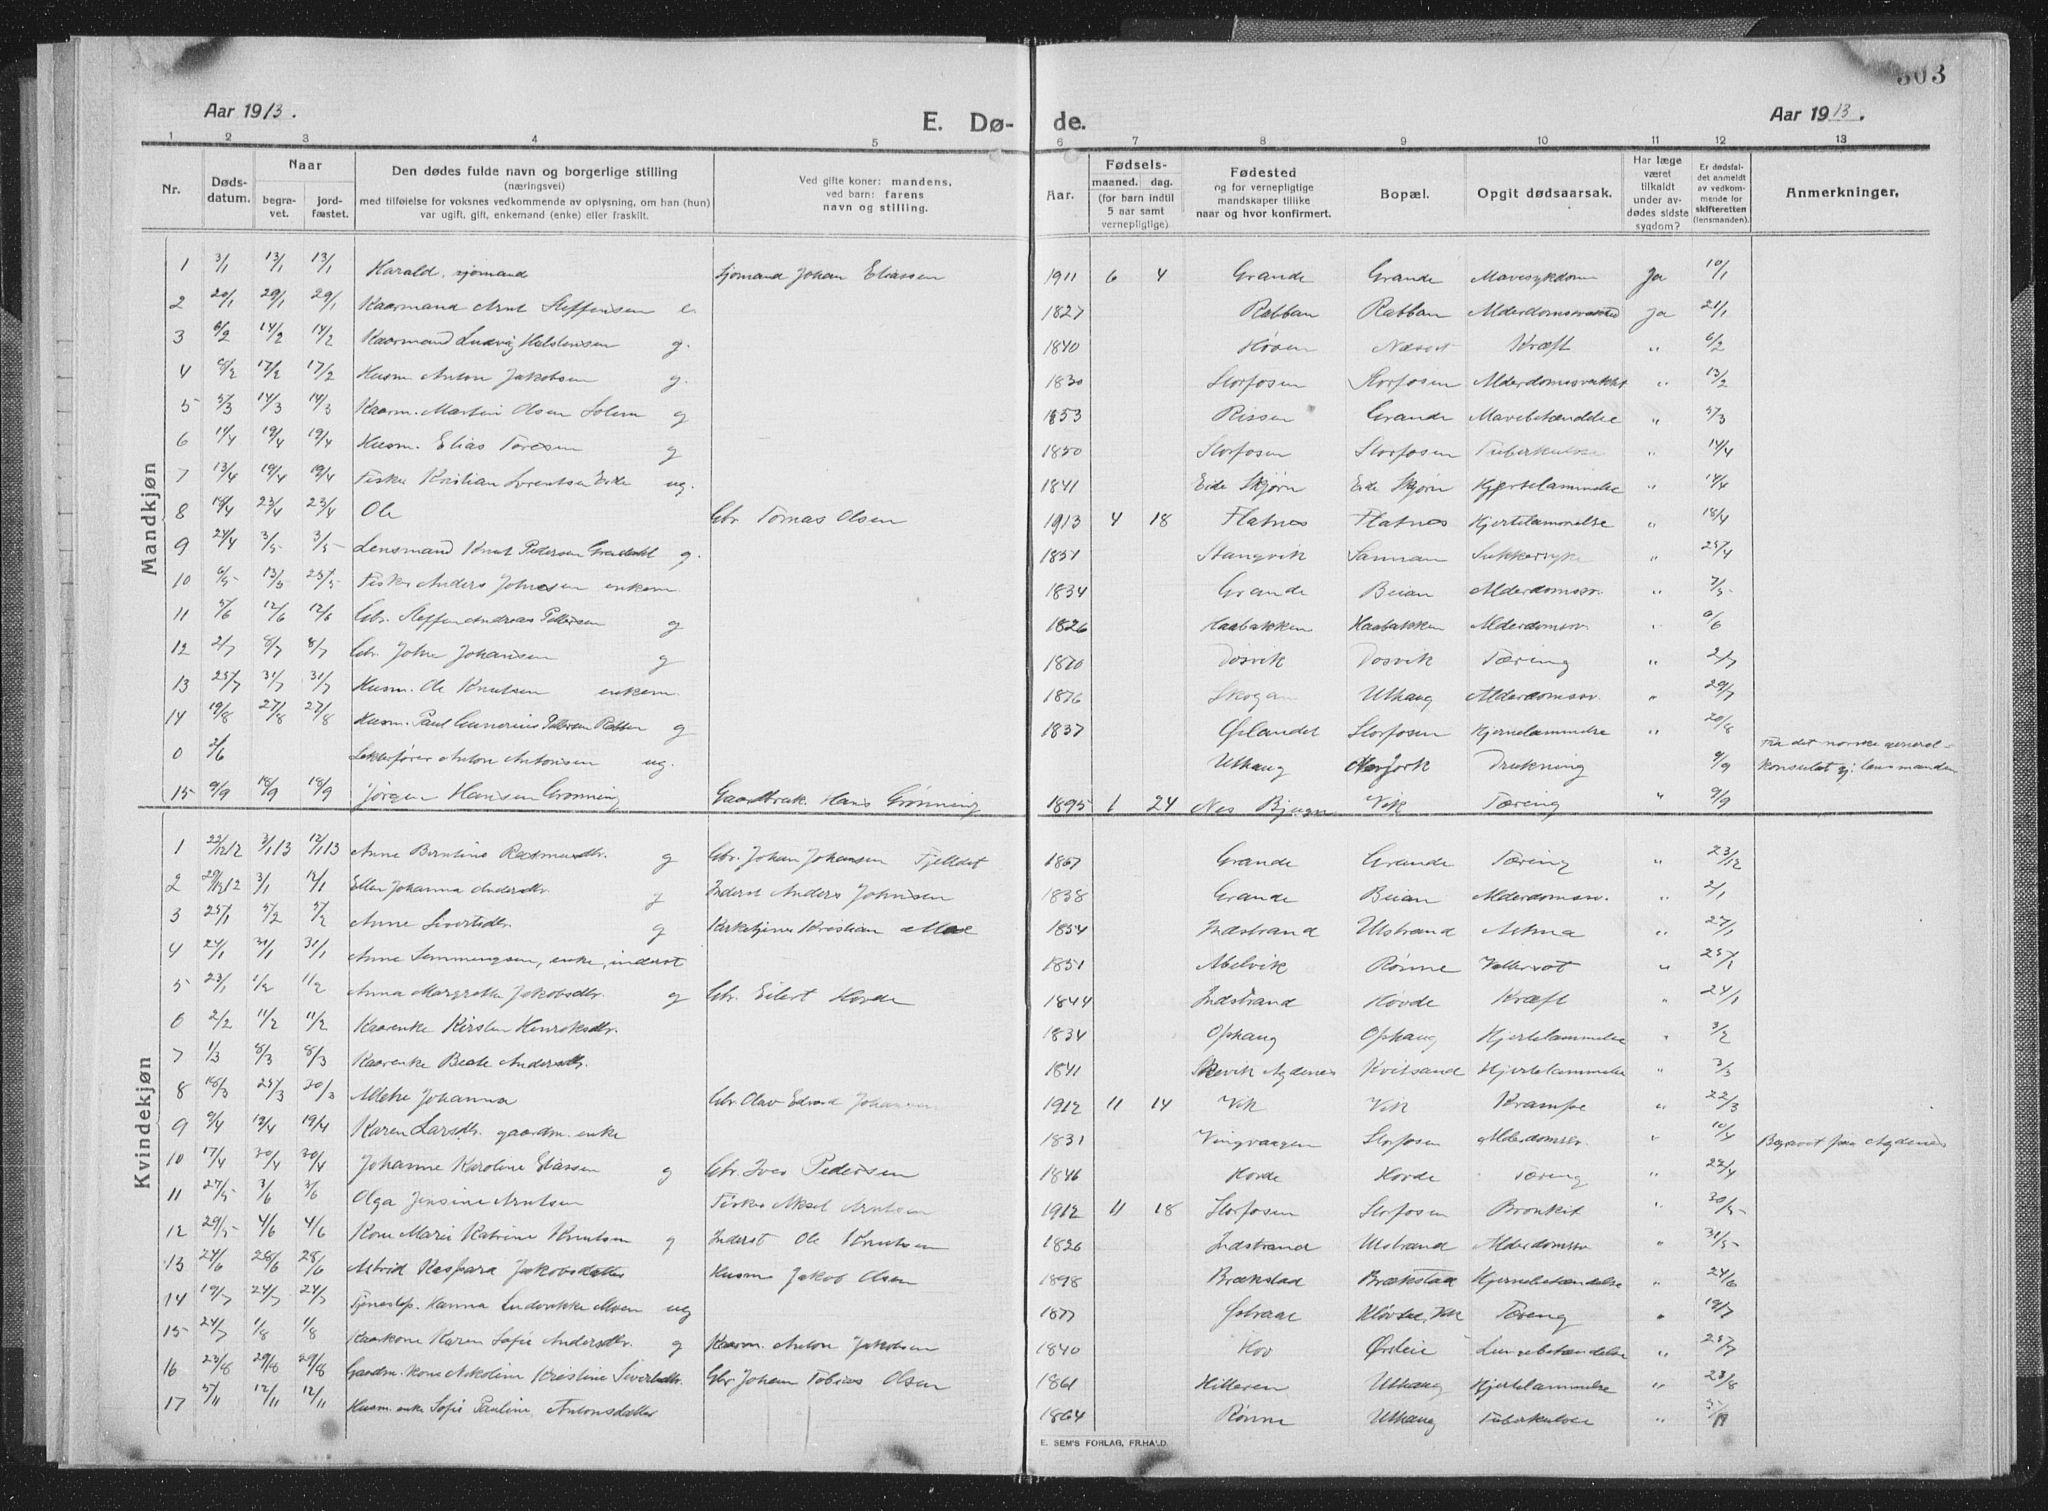 303
Aar 1913.
E. Dø- de.
Aar 1913.
1 2 3 4 5 6 7 8 9 10 11 12 13
Nr.
Døds-
datum.
Naar
begra-
vet.
jord-
fæstet.
Den dødes fulde navn og borgerlige stilling
(næringsvei)
med tilføielse for voksnes vedkommende av oplysning, om han (hun)
var ugift, gift, enkemand (enke) eller fraskilt.
Ved gifte koner: mandens,
ved barn: farens
navn og stilling.
Aar.
Fødsels-
maaned. dag.
(for barn indtil
5 aar samt
vernepligtige)
Fødested
og for vernepligtige
mandskaper tillike
naar og hvor konfirmert.
Bopæl.
Opgit dødsaarsak.
Har læge
været
tilkaldt
under av-
dødes sidste
sygdom?
Er dødsfal-
det anmeldt
av vedkom-
mende for
skifteretten
(lensmanden).
Anmerkninger.
Mandkjøn
1 3/1 13/1 13/1 Harald, sjømand Sjømand Johan Eliassen 1911 6 4 Grande Grande Mavesykdom Ja 10/1
2 20/1 29/1 29/1 Kaarmand Arnt Steffensen e. 1827 Rabban Rabban Ja 21/1
3 6/2 14/2 14/2 Kaarmand Ludvig g. 1840 Kræft " 6/2
4 17/2 17/2 Husm. Anton Jakobsen g. 1830 Storfosen Storfosen Alderdomssvækket " 13/2
5 5/3 14/3 14/3 Kaarm. Martin Olsen Solem g 1853 Rissen Grande Mavebetændelse " 5/3
6 11/4 19/4 19/4 Husm. Elias Toresen g 1850 Storfosen Storfosen Tuberkulose " 14/4
7 13/4 19/4 19/4 Fisker Kristian Lorentsen Eide ug. 1841 Eide Skjørn Eide Skjørn Hjertelammelse " 14/4
8 18/4 23/4 23/4 Ole Gbr. Tomas Olsen 1913 4 18 Flatnes Flatnes Hjertelammelse " 18/4
9 24/4 3/5 3/5 Lensmand Knut Pedersen g. 1851 Stangvik Sannan Sukkersyke " 25/4
10 6/5 13/5 25/5 Fisker Anders Johnsen enkem. 1834 Grande Beian Alderdomssv. " 7/5
11 5/6 12/6 12/6 Gbr. Steffen Andreas Pettersen g 1826 Haabakken Haabakken Alderdomssv. " 6/6
12 2/7 8/7 8/7 Gbr. John Johansen g 1870 Dosvik Dosvik Tæring " 2/7
13 25/7 31/7 31/7 Husm. Ole Knutsen enkem. 1876 Skogan Uthaug Alderdomssv. " 29/7
14 19/8 27/8 27/8 Husm. Paul Gunerius Pettersen g 1837 Ørlandet Storfosen Hjertelammelse " 20/8
0 2/6 Lekterfører Anton Antonsen ug. Uthaug New Jork Drukning 9/9 Fra det norske general-
konsulat gj. lensmanden
15 9/9 18/9 18/9 Jørgen Hansen Grønning Gaardbruk. Hans Grønning 1895 1 24 Nes Bjugn Vik Tæring " 9/9
Kvindekjøn
1 22/12 12 3/1 13 12/1 13 Anne Berntine Rasmusdtr. g Gbr. Johan Johansen Fjelldet 1867 Grande Grande Tæring " 23/12
2 29/12 12 3/1 12/1 Ellen Johanna Andersdtr. g Inderst Anders Johnsen 1838 Grande Beian Alderdomssv. " 2/1
3 25/1 5/2 5/2 Anne Sivertsdtr. g Kirketjener Kristian Moe 1854 Indstrand Ulstrand Astma " 27/1
4 24/1 31/1 31/1 Anne Lemmengsen, enke, inderst 1851 Abelvik Rønne Vattersot " 25/1
5 23/1 1/2 11/2 Anna Margrethe Jakobsdtr. g Gbr. Eilert Hovde 1844 Indstrand Hovde Kræft " 24/1
6 2/2 11/2 11/2 Kaarenke Kirsten Henriksdtr. 1834 Ophaug Ophaug Hjertelammelse " 3/2
7 1/3 8/3 8/3 Kaarenke Beate Andersdtr. 1841 Agdenes Kvitsand Hjertelammelse " 3/3
8 18/3 25/3 20/3 Johanna Gbr. Olav Edvard Johansen 1912 11 14 Vik Vik Krampe " 22/3
9 9/4 19/4 19/4 Karen Larsdtr. gaardm. enke 1831 Vingvaagen Storfosen Alderdomssv. " 10/4 Begravet paa Agdenes
10 17/4 30/4 30/4 Johanne Karoline Eliassen g Gbr. Iver Pedersen 1846 Hovde Hovde Tæring " 22/4
11 27/5 3/6 3/6 Olga Jensine Arntsen Fisker Aksel Arntsen 1912 11 18 Storfosen Storfosen Bronkit " 30/5
12 29/5 4/6 4/6 Kone Marie Katrine Knutsen g Inderst Ole Knutsen 1826 Indstrand Ulstrand Alderdomssv. " 31/5
13 24/6 28/6 28/6 Astrid Kaspara Jakobsdatter Husm Jakob Olsen 1898 Brækstad Brækstad Hjernebetændelse " 24/6
14 19/7 24/7 24/7 Tjenestep. Hanna Ludvikke Moen ug 1877 Østraat Tæring " 19/7
15 24/7 1/8 1/8 Kaarkone Karen Sofie Andersdtr. g Kaarm. Anton Jakobsen 1840 Hov Ørslein Lungebetændelse " 25/7
16 23/8 29/8 29/8 Gaardm. kone Nikoline Kristine Sivertsdtr. Gbr Johan Tobias Olsen 1861 Hitteren Uthaug Hjertelammelse " 23/8
17 5/11 12/11 12/11 Husm. enke Sofie Pauline Antonsdatter 1864 Rønne Uthaug Tuberkulose " 5/11
E. SEM'S FORLAG, FR.HALD.